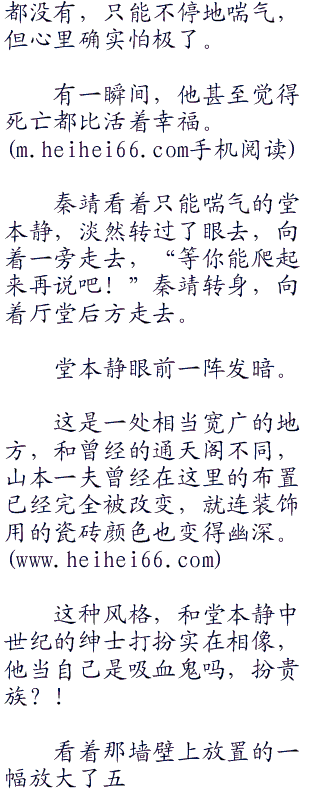 都没有，只能不停地喘气，
但心里确实怕极了。
有一瞬间，他甚至觉得
死亡都比活着幸福。
(m.heihei66.com手机阅读)
秦靖看着只能喘气的堂
本静，淡然转过了眼去，向
着一旁走去，“等你能爬起
来再说吧！”秦靖转身，向
着厅堂后方走去。
堂本静眼前一阵发暗。
这是一处相当宽广的地
方，和曾经的通天阁不同，
山本一夫曾经在这里的布置
已经完全被改变，就连装饰
用的瓷砖颜色也变得幽深。
(www.heihei66.com)
这种风格，和堂本静中
世纪的绅士打扮实在相像，
他当自己是吸血鬼吗，扮贵
族？！
看着那墙壁上放置的一
幅放大了五